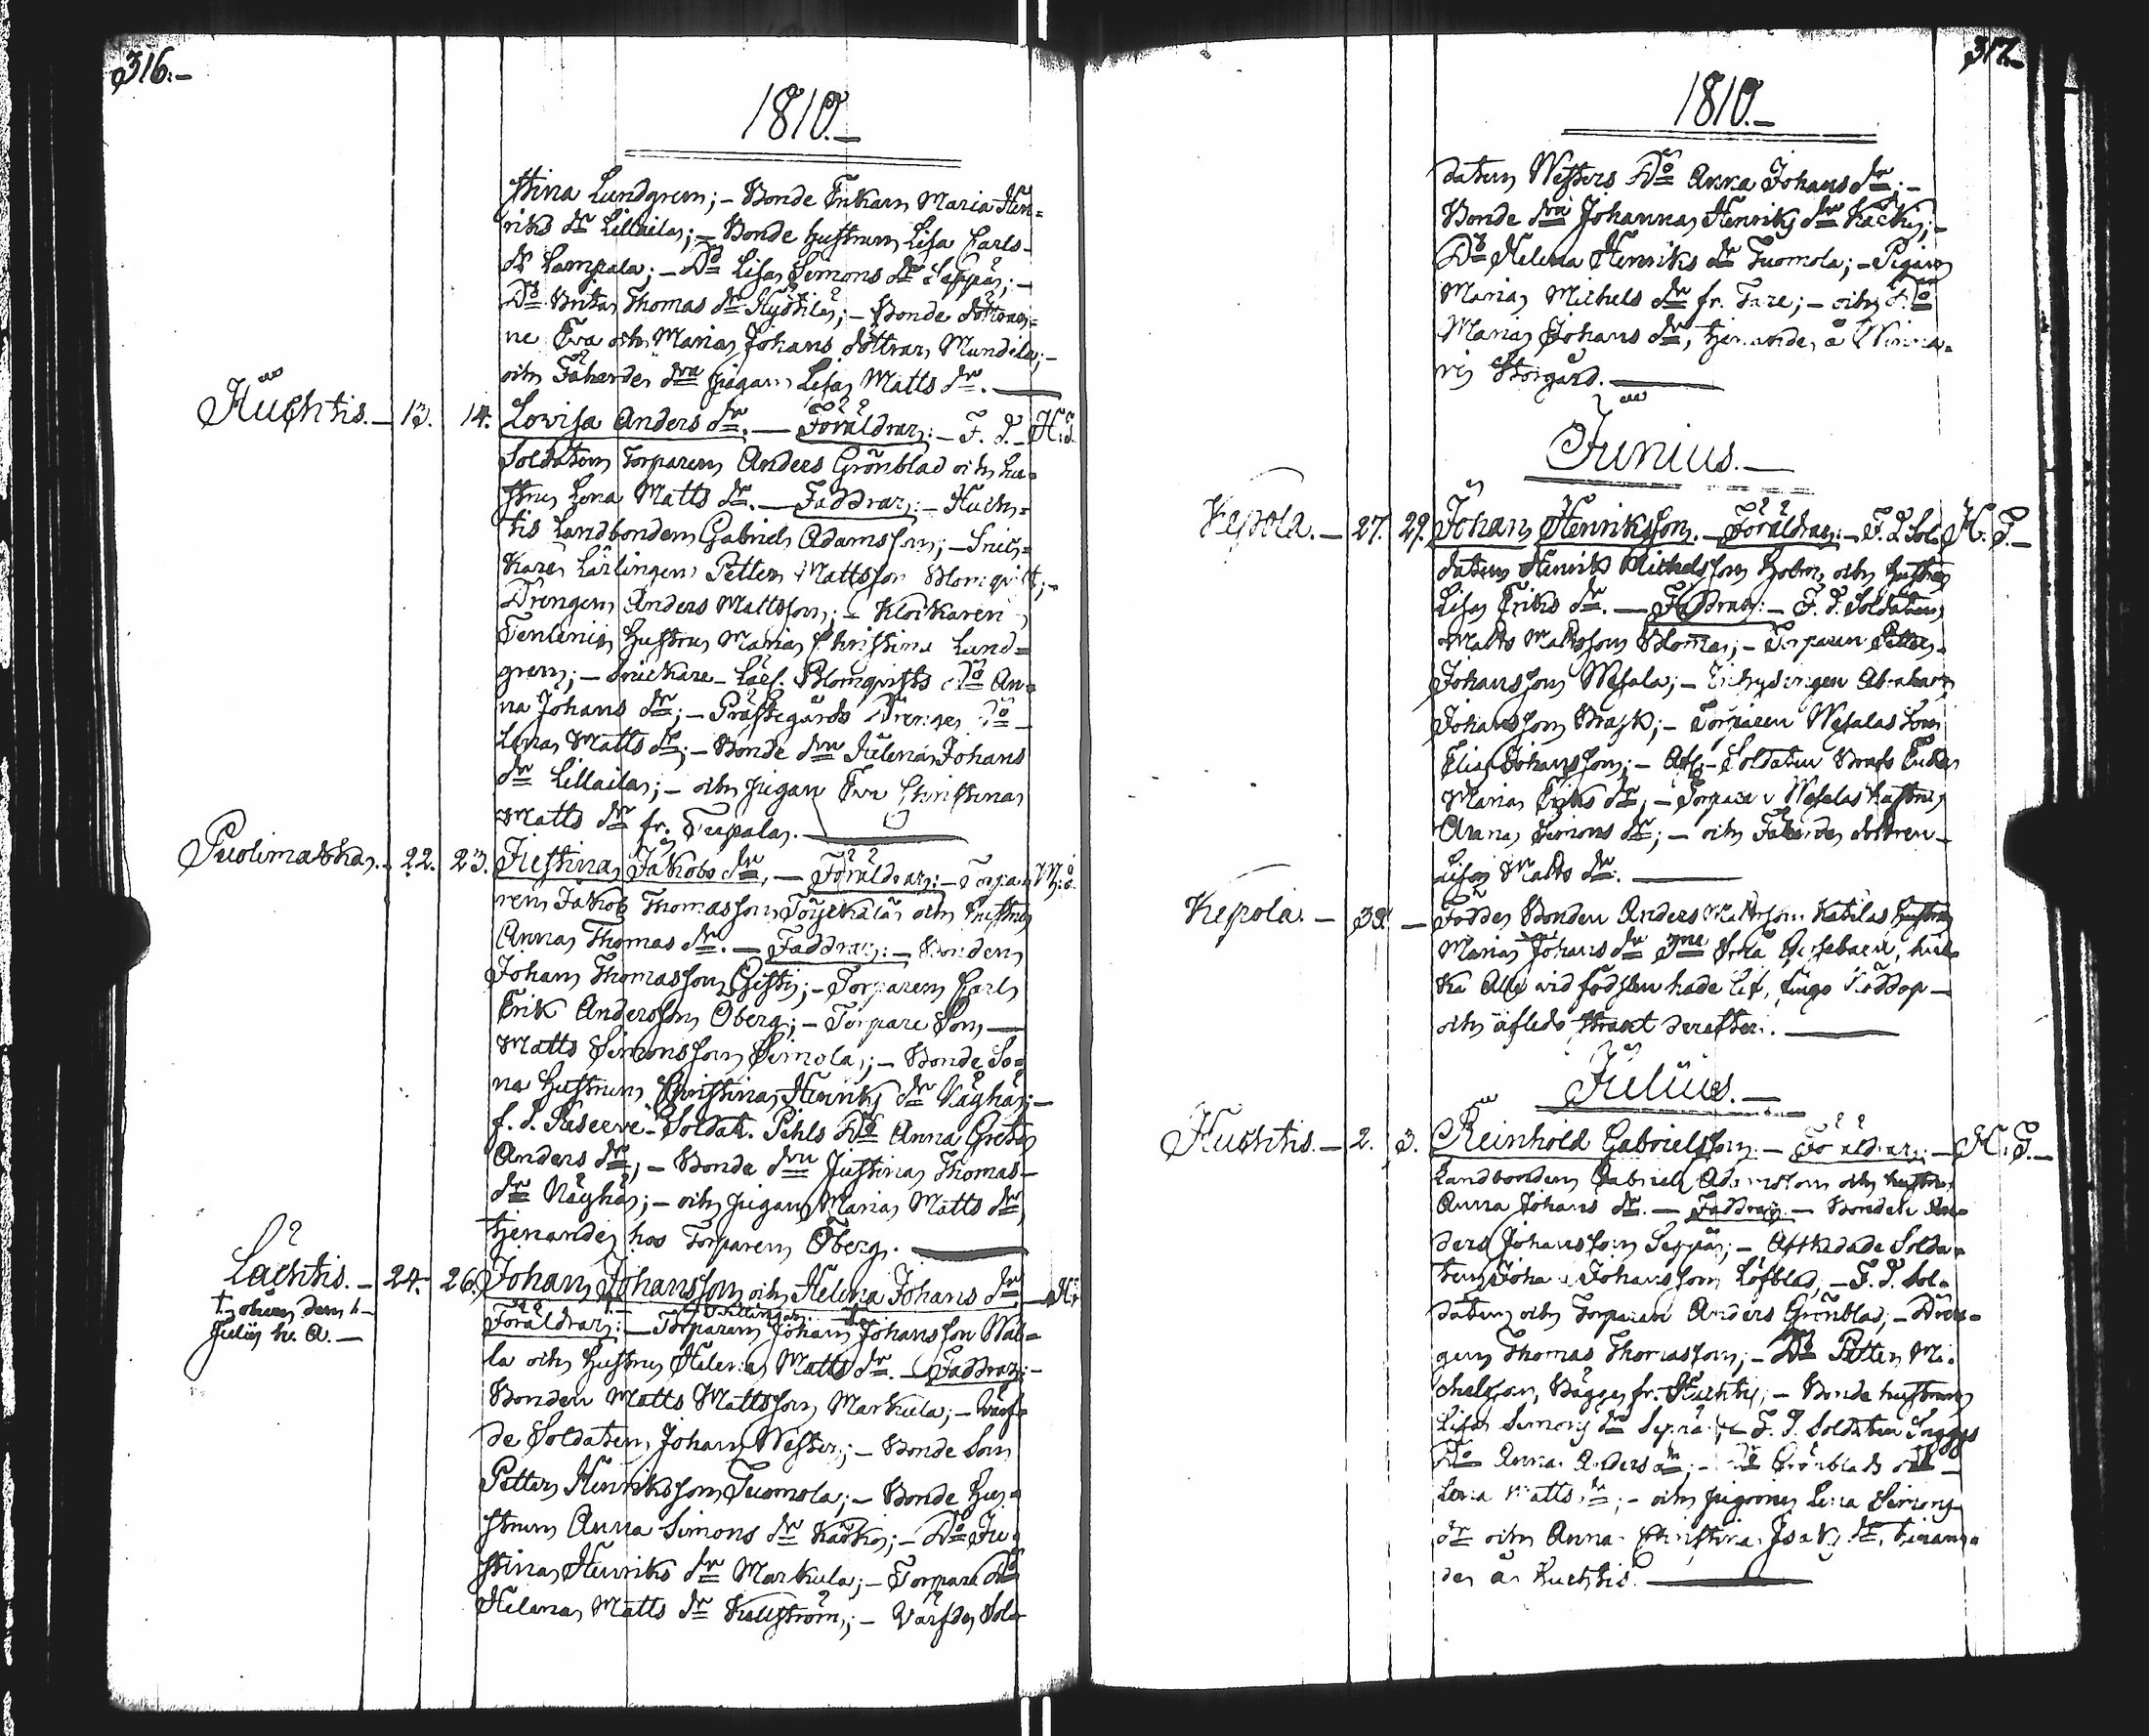 316.-
1810.-
stina Lundgren; - Bonde Enkan Maria Hen=
riks dr Lillaila; - Bonde hustrun Lisa Carls-
dr Lampala; - Do Lisa Simons dr Seppä; -
Do Brita Thomas dr Kyttilä; - Bonde döttrar=
ne Eva och Maria Johans döttrar Mundila; -
och Faherde dra pigan Lisa Matts dr. -
Huchtis. - 13. 14. Lovisa Anders dr. - Föräldrar: - F. d. H:s.
Soldaten Torparen Anders Grönblad och hu=
stru Lena Matts dr. - Faddrar: - Huch=
tis Landbonden Gabriel Adamsson; - Snic=
kare Lärlingen Petter Mattsson Blomqvist; -
Drengen Anders Mattsson; - Klockaren
Tenlenii Hustru Maria Christina Lund=
gren; - Snickare-Lärl. Blomqvists Do An=
na Johans dr; - Prästegårds Drenges Do -
Lena Matts dr; - Bonde dra Helena Johans
dr Lillaila; - och pigan Eva Christina
Matts dr fr. Terpala. -
Puolimatka. - 22. 23. Justina Jakobs dr, - Föräldrar: - Torpa= M:s.
ren Jakob Thomasson och hustru
Anna Thomas dr. - Faddrar: - Bonden
Johan Thomasson; - Torparen Carl
Erik Andersson Öberg; - Torpare Son -
Matts Simonsson Simola; - Bonde So=
na Hustrun Christina Henriks dr Näyhä; -
f. d. Reserve-Soldat. Pihls Do Anna Greta
Anders dr; - Bonde dra Justina Thomas-
dr Näyhä; - och pigan Maria Matts dr
tjenande hos Torparen Öberg. -
Lächtis. - 24. 26. Johan Johansson och Helena Johans dr - H:
Julii h. A. - Föräldrar: - Torparen Johan Johansson Wäl=
Tvillingar.
la och hustru Helena Matts dr. - Faddrar: -
Bonden Matts Mattsson Markula; - Värf=
de Soldaten Johan Wester; - Bonde Son
Petter Henriksson Tuomola; - Bonde Hu=
strun Anna Simons dr Kackis; - Do Ju=
stina Henriks dr Markula; - Torpare Do
Helena Matts dr Källström; - Värfde Sol=
317.-
1810.-
daten Westers Do Anna Johans dr; -
Bonde dra Johanna Henriks dr Kackis; -
Do Helena Henriks dr Tuomola; - Pigan
Maria Michels dr fr. Tare; - och Do
Maria Johans dr, tjenande å Winna=
ris Storgård. -
Junius. -
Kepola. - 27. 29. Johan Henriksson. - Föräldrar: - F. d. Sol H. S. -
daten Henrik Michelsson Holm och hustru
Lisa Eriks dr. - Faddrar: - F. d. Soldaten
Matts Mattsson Blomär; - Torparen Petter
Johansson Wesala; - Inhysingen Abraham
Johansson Brask; - Torparen Wesalas Son
Elias Johansson; - Afl:- Soldaten Brasks Enka
Maria Eriks dr; - Torparen Wesalas hustru
Anna Simons dr; - och Faherde dottren -
Lisa Matts dr. -
Kepola. - 30. - Födde Bonden Anders Mattsson Katilas hustru
Maria Johans dr små barn, hvil=
ka alla vid födslen hade lif, fingo Nöddop -
och afledo straxt derefter. -
Julius. -
Huchtis. - 2. 3. Reinhold Gabrielsson. - Föräldrar: - H. S. -
Landbonden Gabriel Adamsson och hustru
Anna Johans dr. - Faddrar: - Bonden An=
ders Johansson Seppä; - Afskedade Solda=
ten Johan Johansson Löfblad; - F. d. Sol=
daten och Torparen Anders Grönblad; - Drän=
gen Thomas Thomasson; - Do Petter Mi=
chelsson, Bägge fr. Huchtis; - Bonde hustrun
Lisa Simons dr Seppä; - F. d. Soldaten
Do Anna Anders dr; - Do Grönblads Do -
Lena Matts dr; - och pigorne Lena Simons
dr och Anna Christina Isaks dr, tienan=
de å Huchtis. -